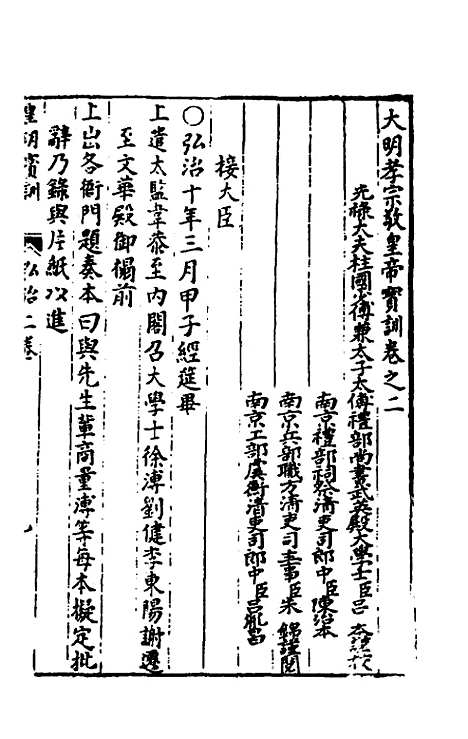 大明孝宗敬皇帝寳訓卷之二
光祿大夫柱國少傅兼太子太傅禮部尚書武英殿大學士臣呂 本謹校
南京禮部祠祭清吏司郎中臣陳治本
南京兵部職方清吏司主事臣朱 錦謹閱
南京工部虞衡清吏司郎中臣呂胤昌
接大臣
○弘治十年三月甲子經筵畢
上遣太監韋泰至内閣召大學士徐溥劉健李東陽謝遷
至文華殿御榻前
上出各衙門題奏本曰與先生輩商量溥等每本擬定批
辭乃錄與片紙以進
皇明寳訓 弘治二卷